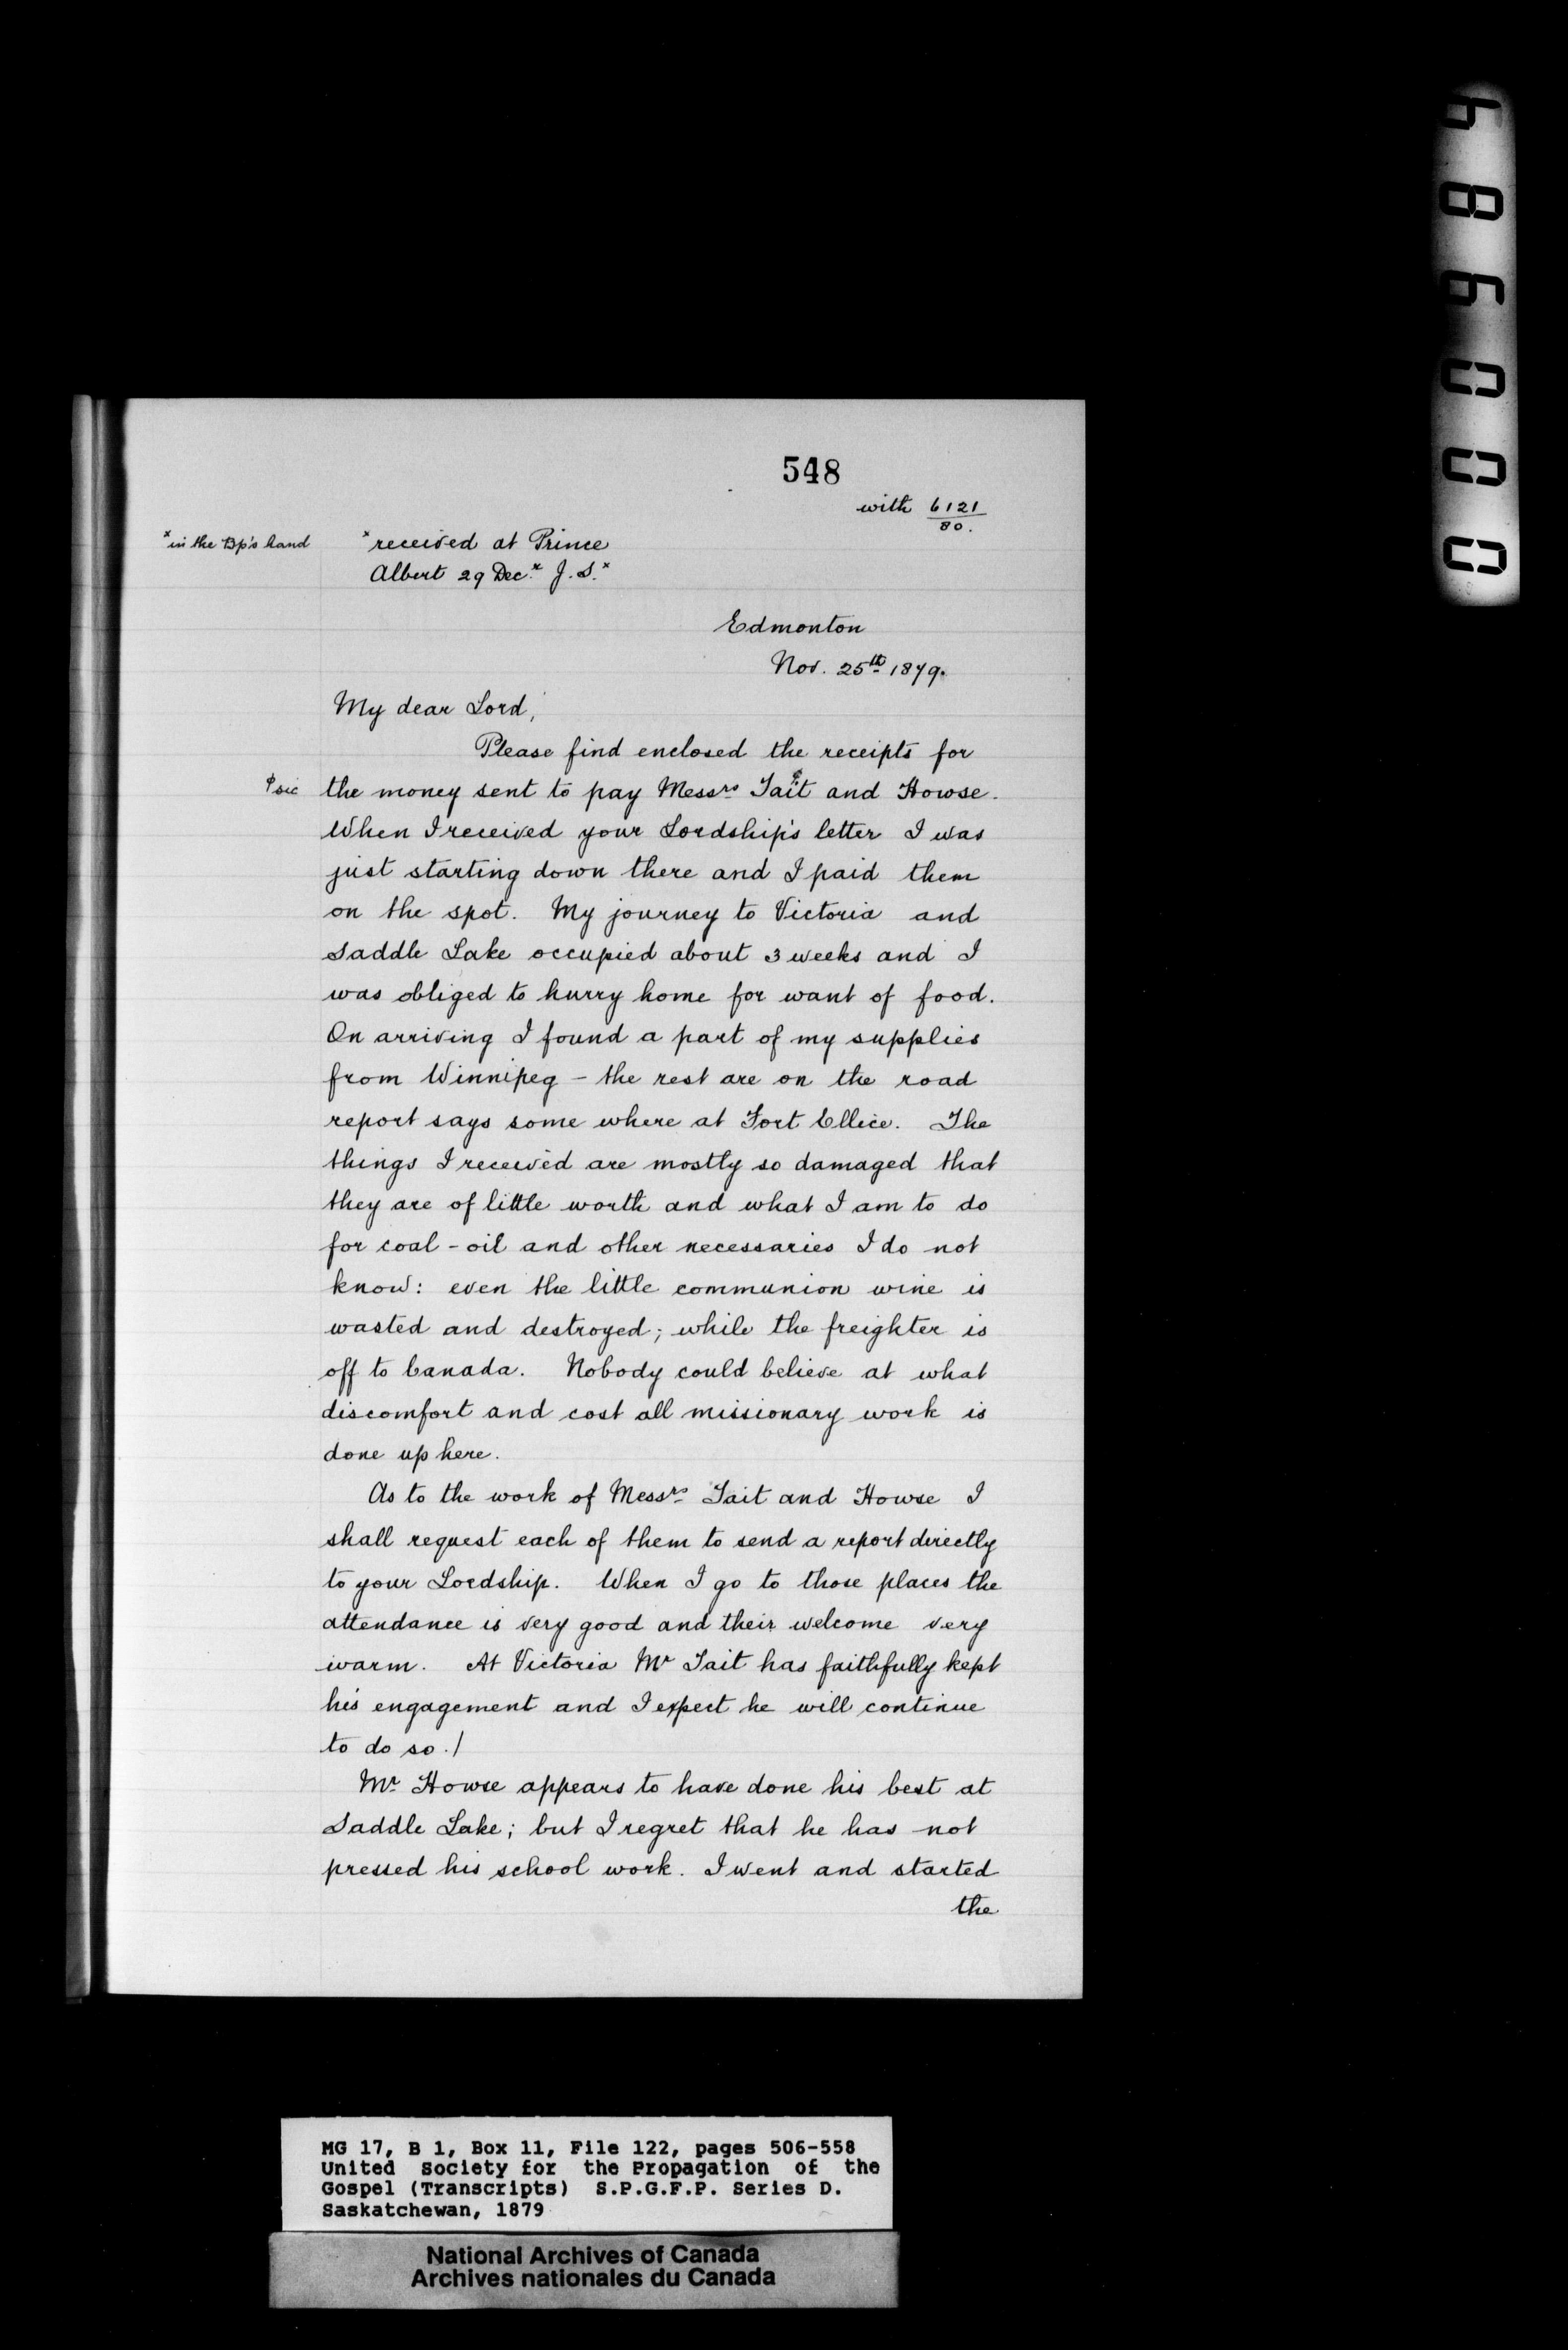 548
with 6121
80.
x in the Bp's hand
x received at Prince
Albert 29 Dec.r J. S. x
Edmonton
Nov. 25th 1879.
My dear Lord,
Please find enclosed the receipts for
φ sic
the money sent to pay Messrs Taiφt and Howse.
When I received your Lordship's letter I was
just starting down there and I paid them
on the spot. My journey to Victoria and
Saddle Lake occupied about 3 weeks and I
was obliged to hurry home for want of food.
On arriving I found a part of my supplies
from Winnipeg – the rest are on the road
report says some where at Fort Ellice. The
things I received are mostly so damaged that
they are of little worth and what I am to do
for coal-oil and other necessaries I do not
know: even the little communion wine is
wasted and destroyed; while the freighter is
off to Canada. Nobody could believe at what
discomfort and cost all missionary work is
done up here.
As to the work of Messrs Tait and Howse I
shall request each of them to send a report directly
to your Lordship. When I go to those places the
attendance is very good and their welcome very
warm. At Victoria Mr Tait has faithfully kept
his engagement and I expect he will continue
to do so./
Mr Howse appears to have done his best at
Saddle Lake; but I regret that he has not
pressed his school work. I went and started
the
MG 17, B 1, Box 11, File 122, pages 506-558
United Society for the Propagation of the
Gospel (Transcripts) S.P.G.F.P. Series D.
Saskatchewan, 1879
National Archives of Canada
Archives nationales du Canada
000984